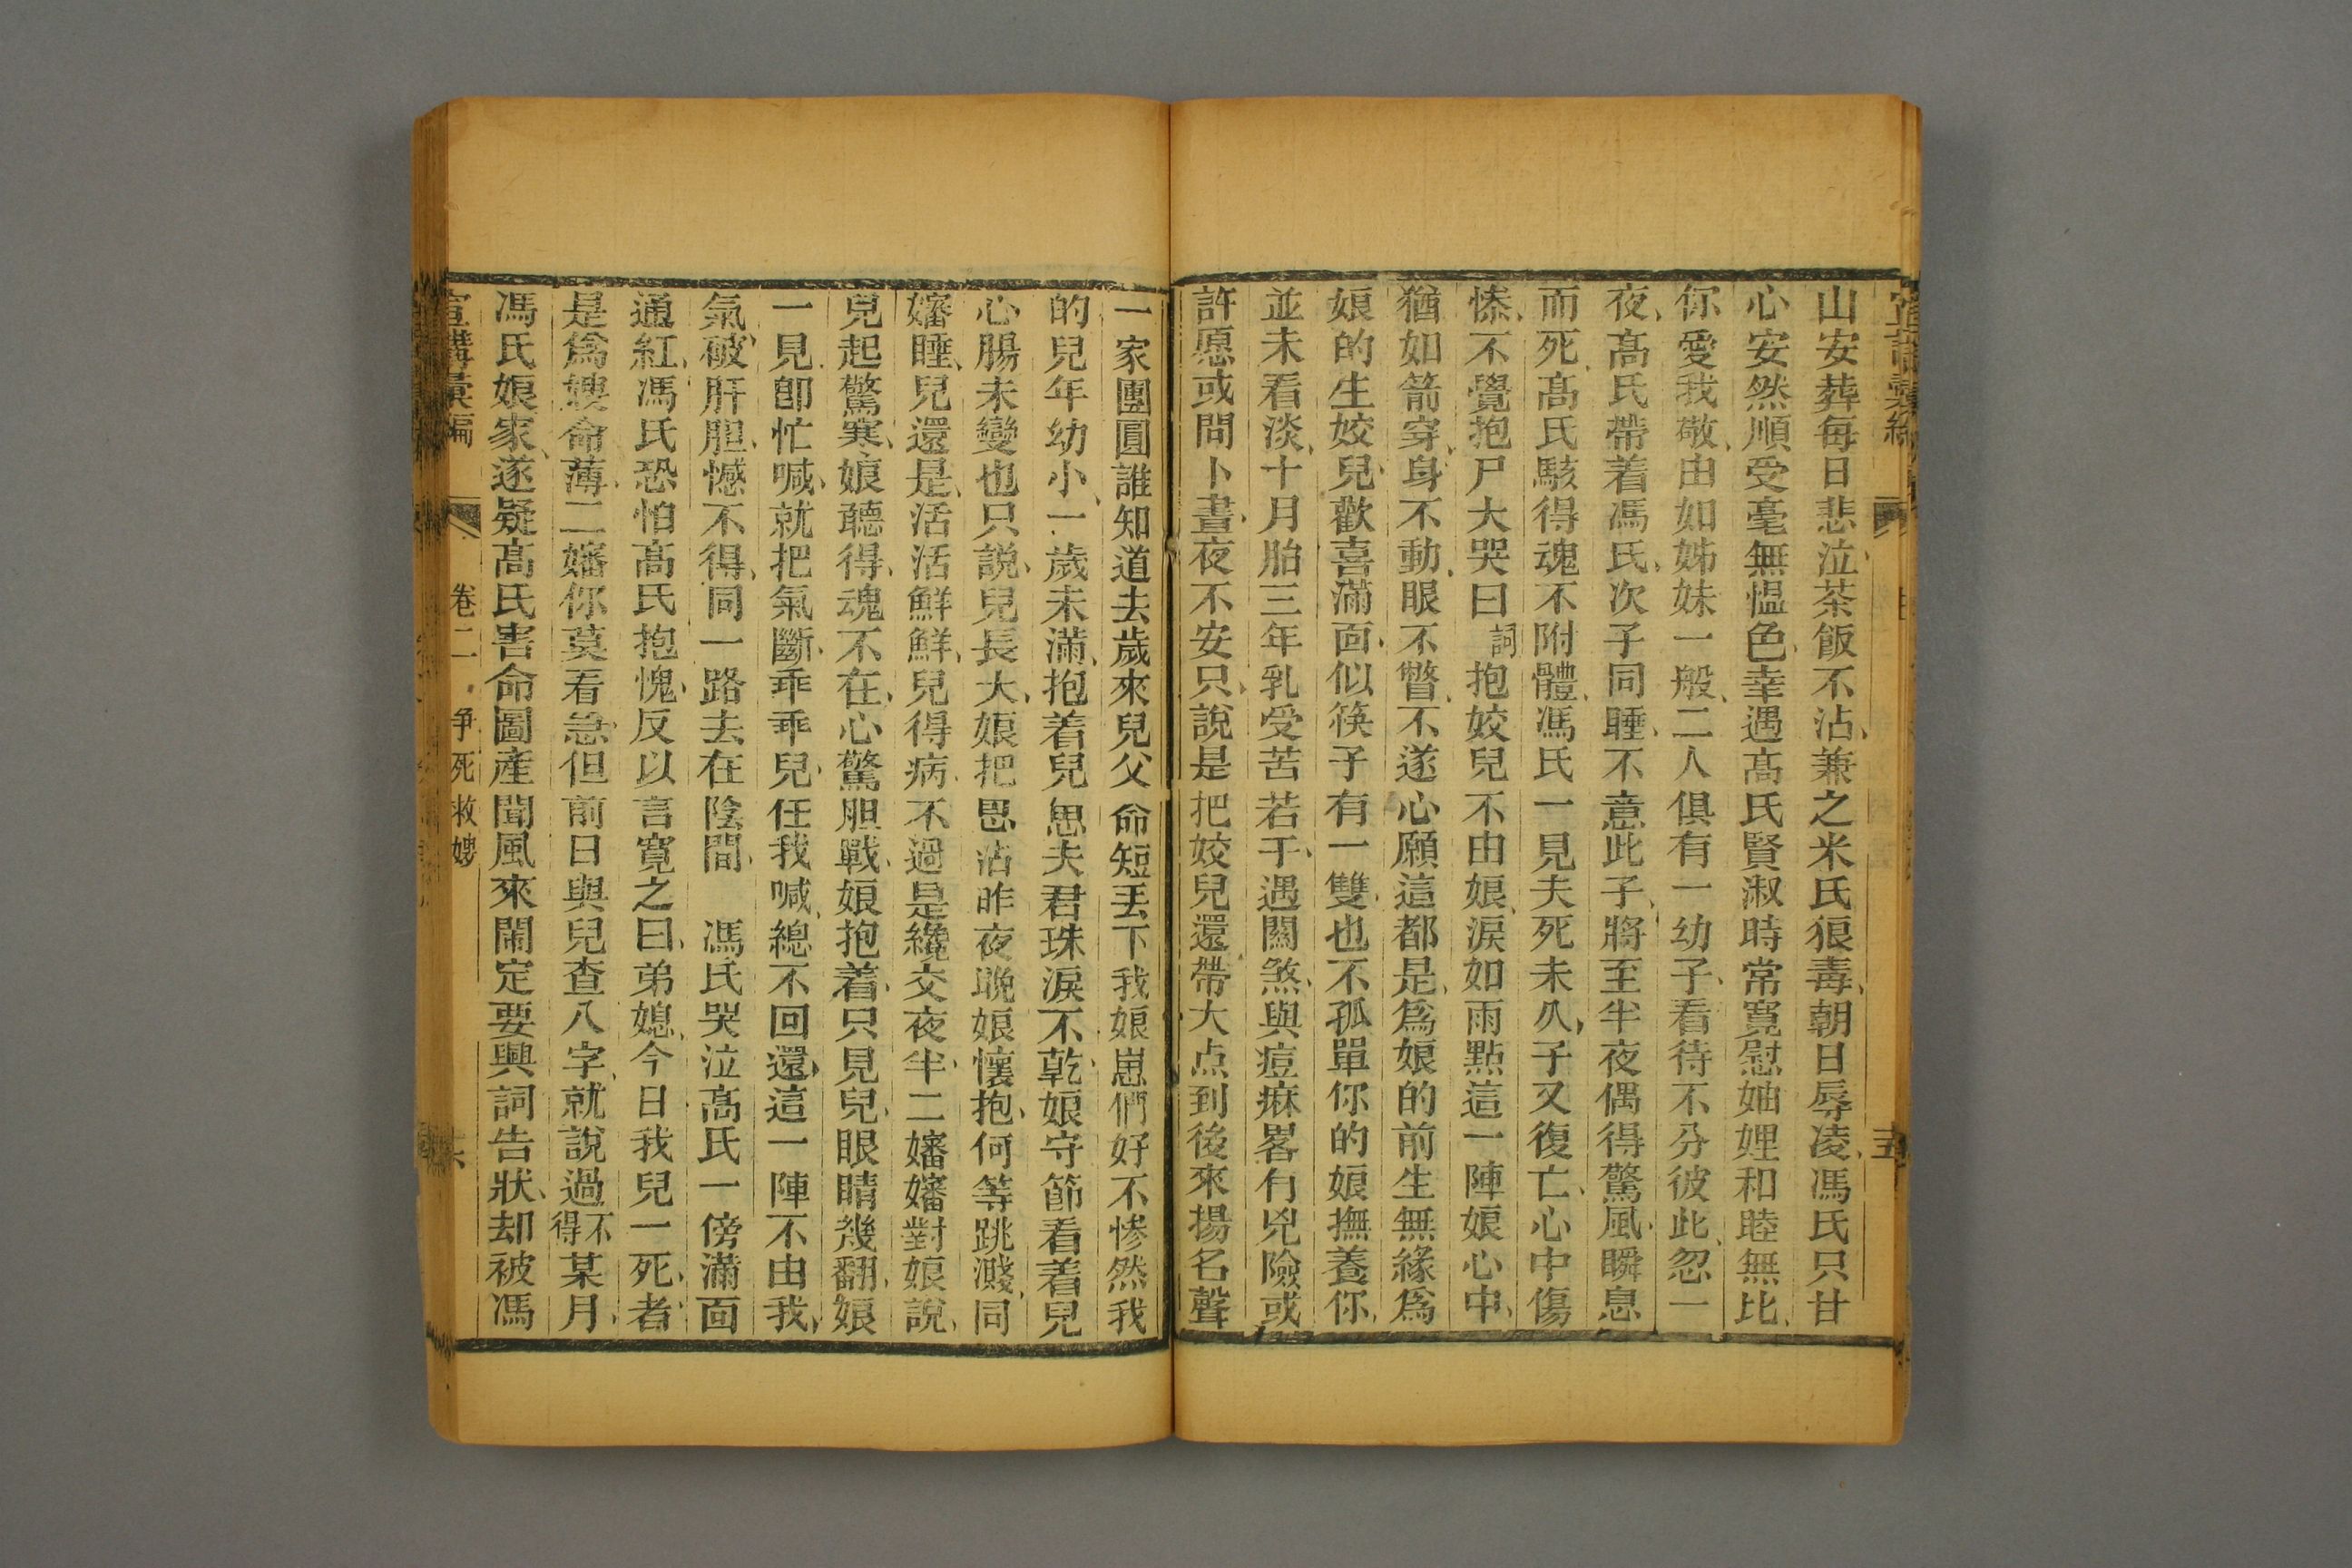 山安葬每日悲泣茶飯不沾兼之米氏狠毒朝日辱凌馮氏只甘
心安然順受毫無愠色幸遇髙氏賢淑時常寬慰妯娌和睦無比
你愛我敬由如姊妹一般二人俱有一幼子看待不分彼此忽一
夜髙氏帶着馮氏次子同睡不意此子將至半夜偶得驚風瞬息
而死髙氏駭得魂不附體馮氏一見夫死未久子又復亡心中傷
慘不覺抱尸大哭曰詞抱姣兒不由娘淚如雨點這一陣娘心中
猶如箭穿身不動眼不瞥不遂心願這都是爲娘的前生無緣爲
娘的生姣兒歡喜滿面似筷子有一雙也不孤單你的娘撫養你
並未看淡十月胎三年乳受苦若干遇關煞與痘痳畧有兇險或
許愿或問卜晝夜不安只說是把姣兒還帶大点到後來揚名聲
一家團圓誰知道去歲來兒父命短丟下我娘崽們好不慘然我
的兒年幼小一歲未滿抱着兒思夫君珠淚不乾娘守節看着兒
心腸未變也只説兒長大娘把恩沾昨夜晚娘懷抱何等跳濺同
嬸睡兒還是活活鮮鮮兒得病不過是纔交夜半二嬸嬸對娘說
兒起驚寒娘聽得魂不在心驚胆戰娘抱着只見兒眼睛幾翻娘
一見卽忙喊就把氣斷乖乖兒任我喊總不回還這一陣不由我
氣破肝胆憾不得同一路去在陰間　馮氏哭泣髙氏一傍滿面
通紅馮氏恐怕髙氏抱愧反以言寬之曰弟媳今日我兒一死者
是爲嫂命薄二嬸你莫看急但前日與兒查八字就說過不得某月
馮氏娘家遂疑髙氏害命圖產聞風來鬧定要興詞告狀却被馮
宣講彙編　卷二　争死救嫂　六